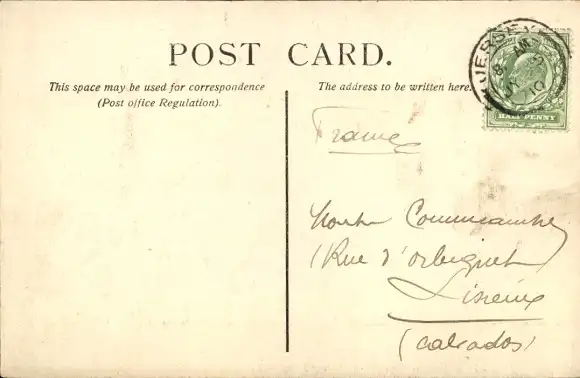 POST CARD.
This space may be used for correspondence
(Post office Regulation).
The address to be written here.
JERSEY
AM
10
HALFPENNY
France
Rue d'orbiquet
Lisieux
(Calvados)